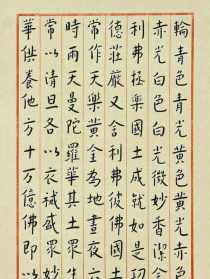 輪青色青光黄色黄光赤色
赤光白色白光微妙香潔舍
利弗極樂國土成就如是功
德莊嚴又舍利弗彼佛國土
常作天樂黄金為地晝夜六
時雨天曼陀羅華其土眾生
常以清旦各以衣祴盛眾妙
華供養他方十萬億佛即以